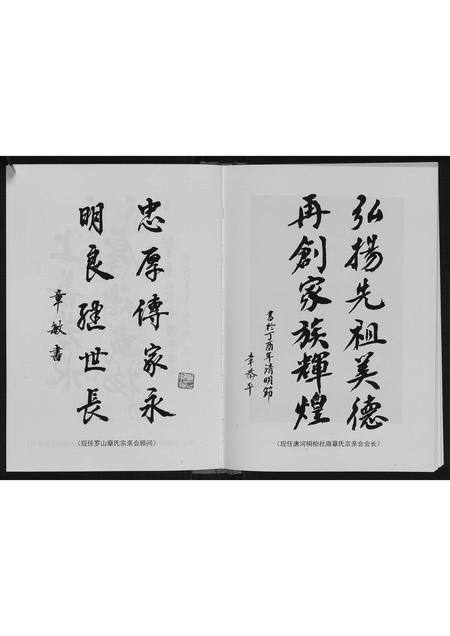 弘揚先祖美德
再創家族輝煌
書於丁酉年清明節
章恭平
(现任唐河桐柏社旗章氏宗亲会会长)
忠厚傳家永
明良继世長
章敏書
(现任罗山章氏宗亲会顾问)